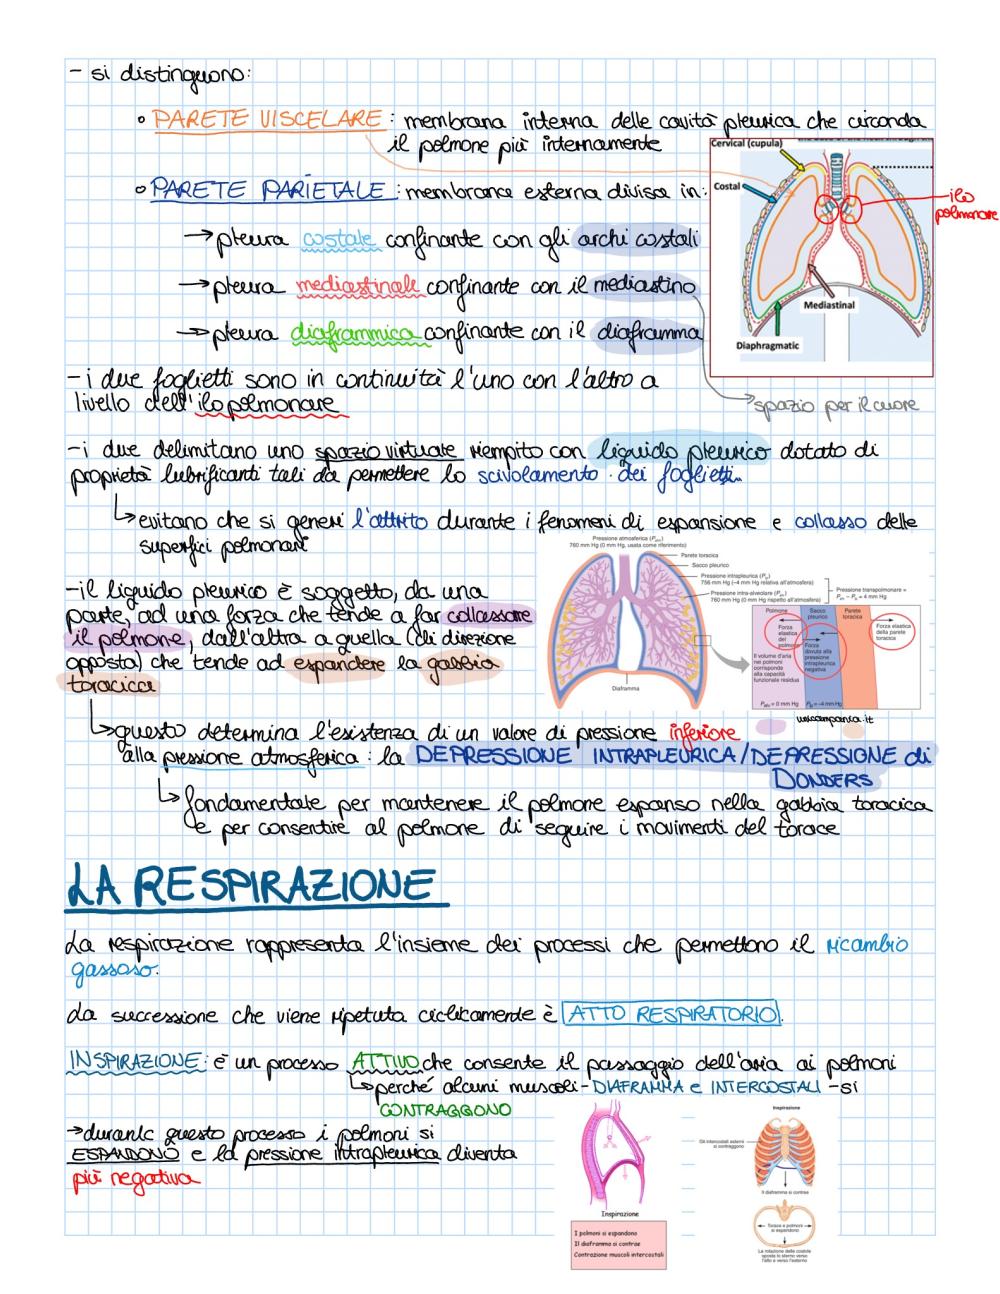 - si distinguono:
° PARETE VISCELARE : membrana interna delle cavità pleurica che circonda
il polmone più internamente
° PARETE PARIETALE : membrana esterna divisa in:
→ pleura costale confinante con gli archi costali
→ pleura mediastinale confinante con il mediastino
→ pleura diaframmica confinante con il diaframma
Cervical (cupula)
Costal
Mediastinal
Diaphragmatic
ilo
polmonare
spazio per il cuore
- i due foglietti sono in continuità l'uno con l'altro a
livello dell'ilo polmonare
- i due delimitano uno spazio virtuale riempito con liquido pleurico dotato di
proprietà lubrificanti tali da permettere lo scivolamento dei foglietti
↳ evitano che si generi l'attrito durante i fenomeni di espansione e collasso delle
superfici polmonari
Pressione atmosferica (Patm)
760 mm Hg (0 mm Hg, usata come riferimento)
Parete toracica
Sacco pleurico
Pressione intrapleurica (Pip)
756 mm Hg (-4 mm Hg relativa all'atmosfera)
Pressione intra-alveolare (Palv)
760 mm Hg (0 mm Hg rispetto all'atmosfera)
Pressione transpolmonare =
Palv – Pip = 4 mm Hg
Polmone
Sacco pleurico
Parete toracica
Forza elastica del polmone
Forza dovuta alla pressione intrapleurica negativa
Forza elastica della parete toracica
Il volume d'aria nei polmoni corrisponde alla capacità funzionale residua
Palv = 0 mm Hg
Pip = -4 mm Hg
Diaframma
unicampania.it
- il liquido pleurico è soggetto, da una
parte, ad una forza che tende a far collassare
il polmone, dall'altra a quella (di direzione
opposta) che tende ad espandere la gabbia
toracica
↳ questo determina l'esistenza di un valore di pressione inferiore
alla pressione atmosferica : la DEPRESSIONE INTRAPLEURICA/DEPRESSIONE di
DONDERS
↳ fondamentale per mantenere il polmone espanso nella gabbia toracica
e per consentire al polmone di seguire i movimenti del torace
LA RESPIRAZIONE
La respirazione rappresenta l'insieme dei processi che permettono il ricambio
gassoso.
La successione che viene ripetuta ciclicamente è ATTO RESPIRATORIO.
INSPIRAZIONE: è un processo ATTIVO che consente il passaggio dell'aria ai polmoni
↳ perché alcuni muscoli - DIAFRAMMA e INTERCOSTALI - si
CONTRAGGONO
→ durante questo processo i polmoni si
ESPANDONO e la pressione intrapleurica diventa
più negativa
Inspirazione
I polmoni si espandono
Il diaframma si contrae
Contrazione muscoli intercostali
Inspirazione
Gli intercostali esterni
si contraggono
Il diaframma si contrae
Torace e polmoni
si espandono
La rotazione delle costole
sposta lo sterno verso
l'alto e verso l'esterno